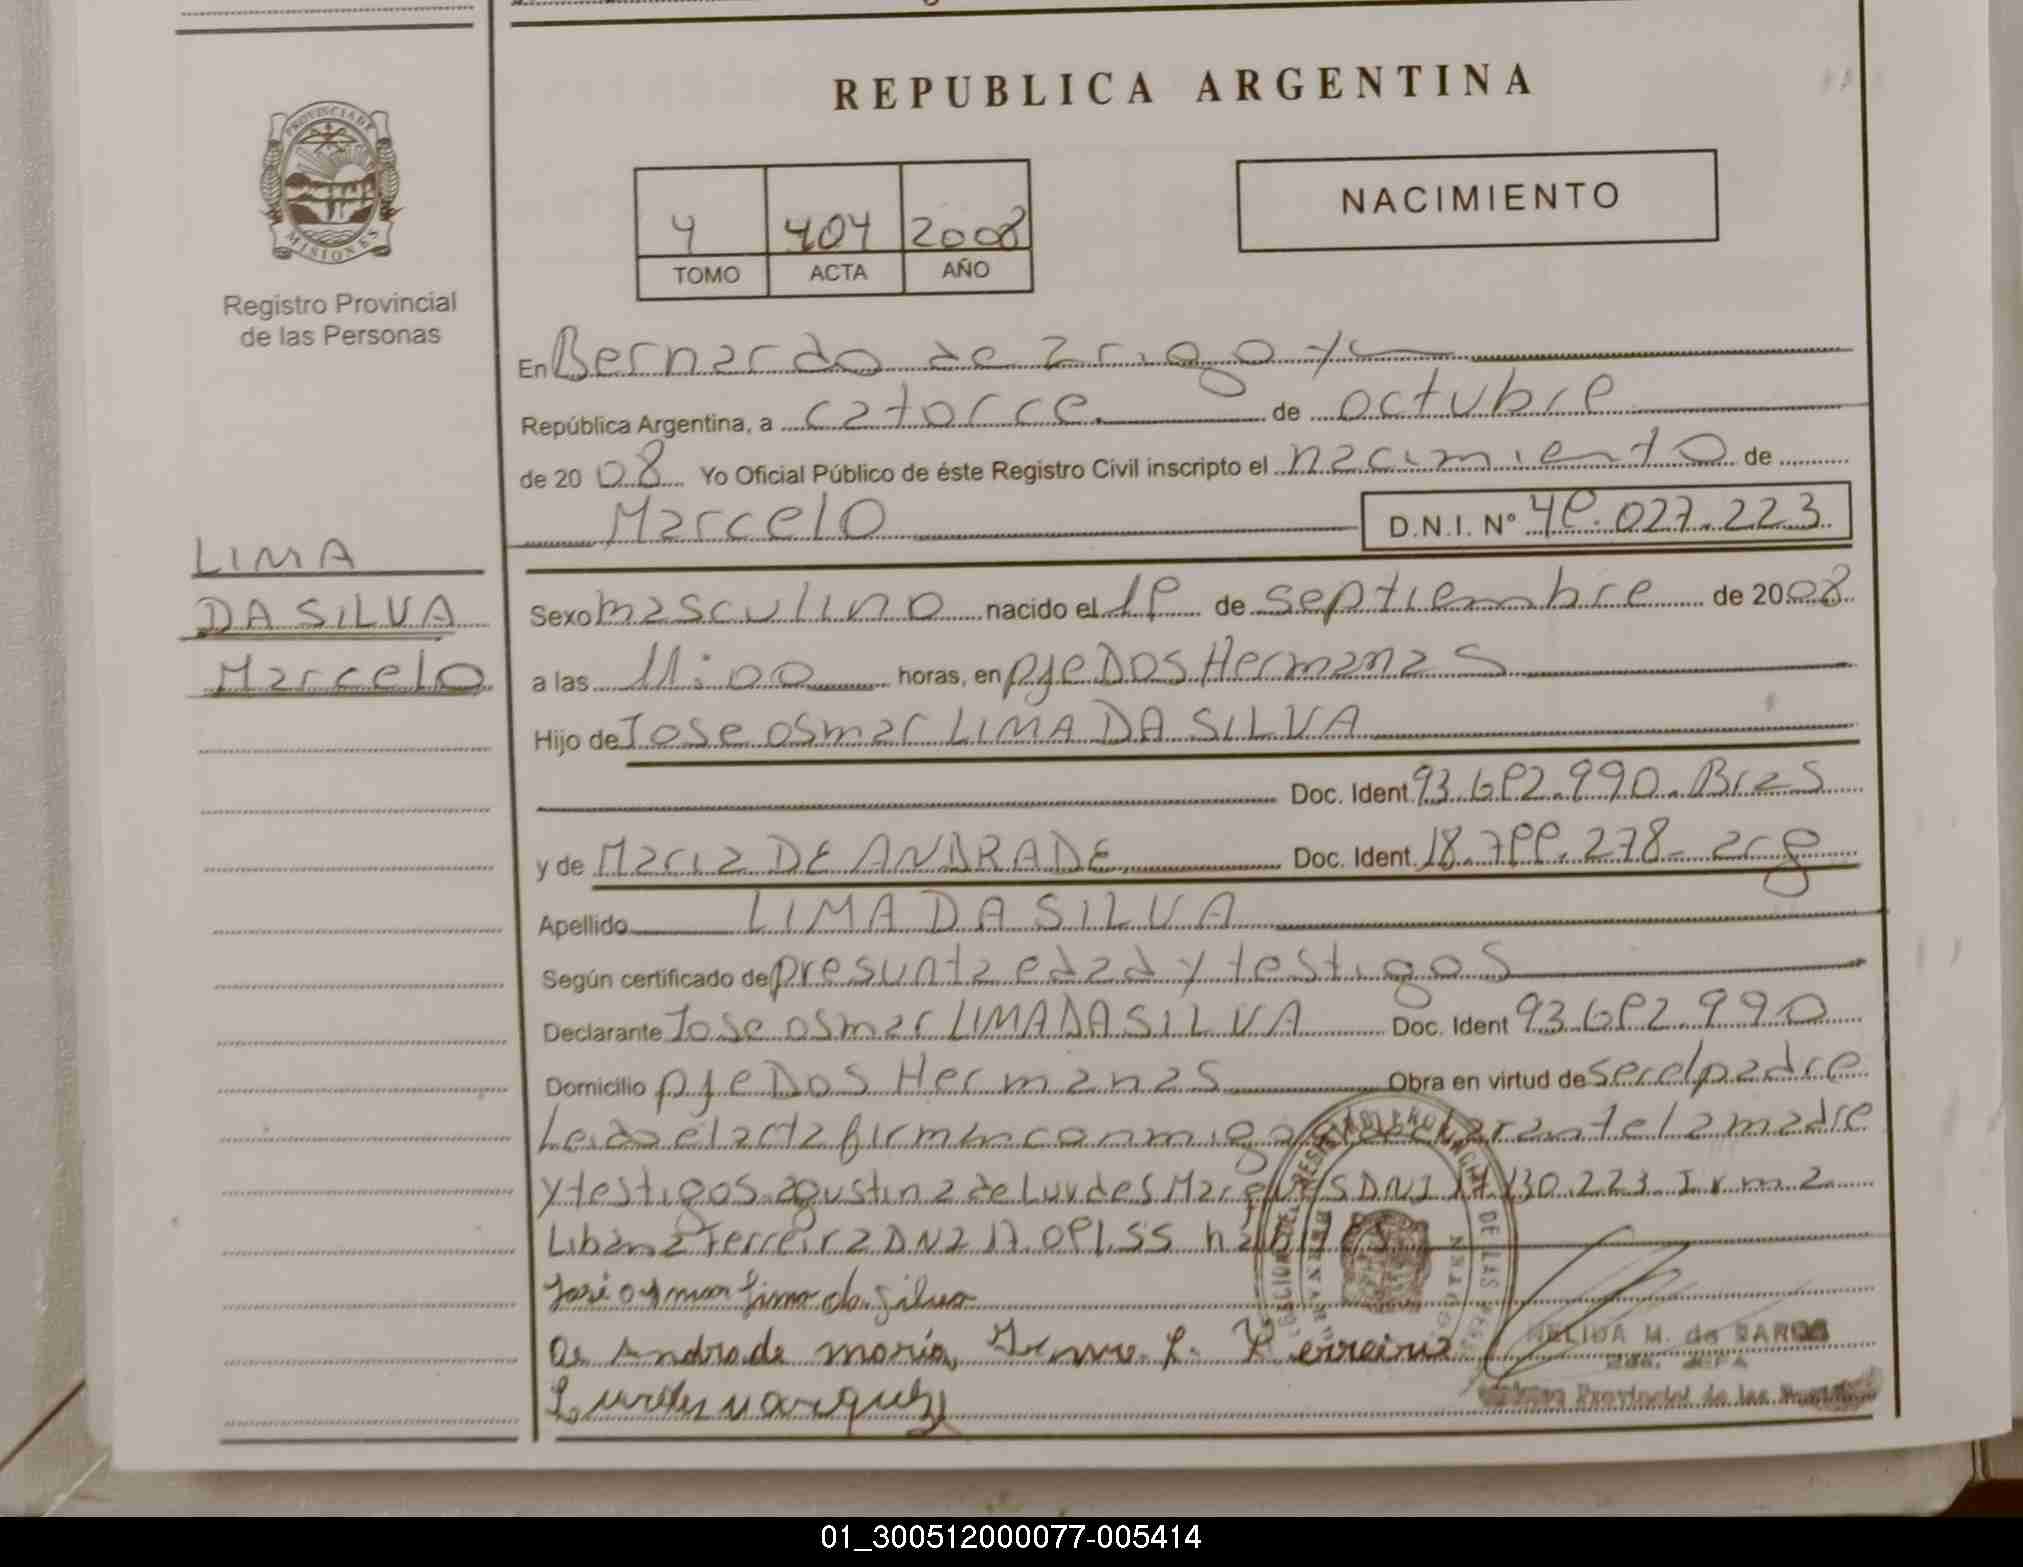 REPUBLICA ARGENTINA
PROVINCIA DE
MISIONES
Registro Provincial
de las Personas
4 404 2008
TOMO ACTA AÑO
NACIMIENTO
En Bernardo de Irigoyen
República Argentina, a catorce de octubre
de 20 08 Yo Oficial Público de éste Registro Civil inscripto el nacimiento de
Marcelo D.N.I. Nº 48.027.223
LIMA
DA SILVA
Marcelo
Sexo masculino nacido el 18 de septiembre de 2008
a las 11:00 horas, en pje Dos Hermanas
Hijo de Jose osmar LIMA DA SILVA
Doc. Ident. 93.682.990. Bras
y de Maria DE ANDRADE Doc. Ident. 18.788.278 - arg
Apellido LIMA DA SILVA
Según certificado de presunta edad y testigos
Declarante Jose osmar LIMA DA SILVA Doc. Ident 93.682.990
Domicilio pje Dos Hermanas Obra en virtud de ser el padre
Leida el acta firman conmigo el declarante la madre
y testigos agustina de Lurdes DNI 130.223 Irma
Libana Ferreira DNI 17.081.55
José osmar lima da silva
De Andrade maría, Irma L. Ferreira
Lurdes marquez
NELIDA M. de BARGS
JEFA
Provincial de las
01_300512000077-005414